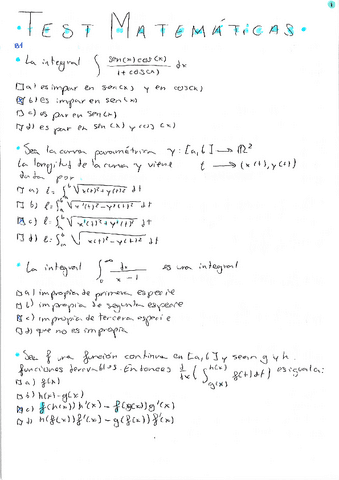 1
TEST MATEMÁTICAS
B1
• La integral ∫ sen(x)cos(x) / 1+cos(x) dx
a) es impar en sen(x) y en cos(x)
b) es impar en sen(x)
c) es par en sen(x)
d) es par en sen(x) y cos(x)
• Sea la curva paramétrica γ: [a,b] → ℝ²
La longitud de la curva γ viene t → (x(t), y(t))
dada por:
a) L = ∫ₐᵇ √x(t)²+y(t)² dt
b) L = ∫ₐᵇ √x'(t)²-y'(t)² dt
c) L = ∫ₐᵇ √x'(t)²+y'(t)² dt
d) L = ∫ₐᵇ √x(t)²-y(t)² dt
• La integral ∫₀^∞ dx / x-1 es una integral
a) impropia de primera especie
b) impropia de segunda especie
c) impropia de tercera especie
d) que no es impropia
• Sea f una función continua en [a,b] y sean g y h
funciones derivables. Entonces d/dx (∫_g(x)^h(x) f(t)dt) es igual a:
a) f(x)
b) h(x)-g(x)
c) f(h(x))h'(x) - f(g(x))g'(x)
d) h(f(x))f'(x) - g(f(x))f'(x)